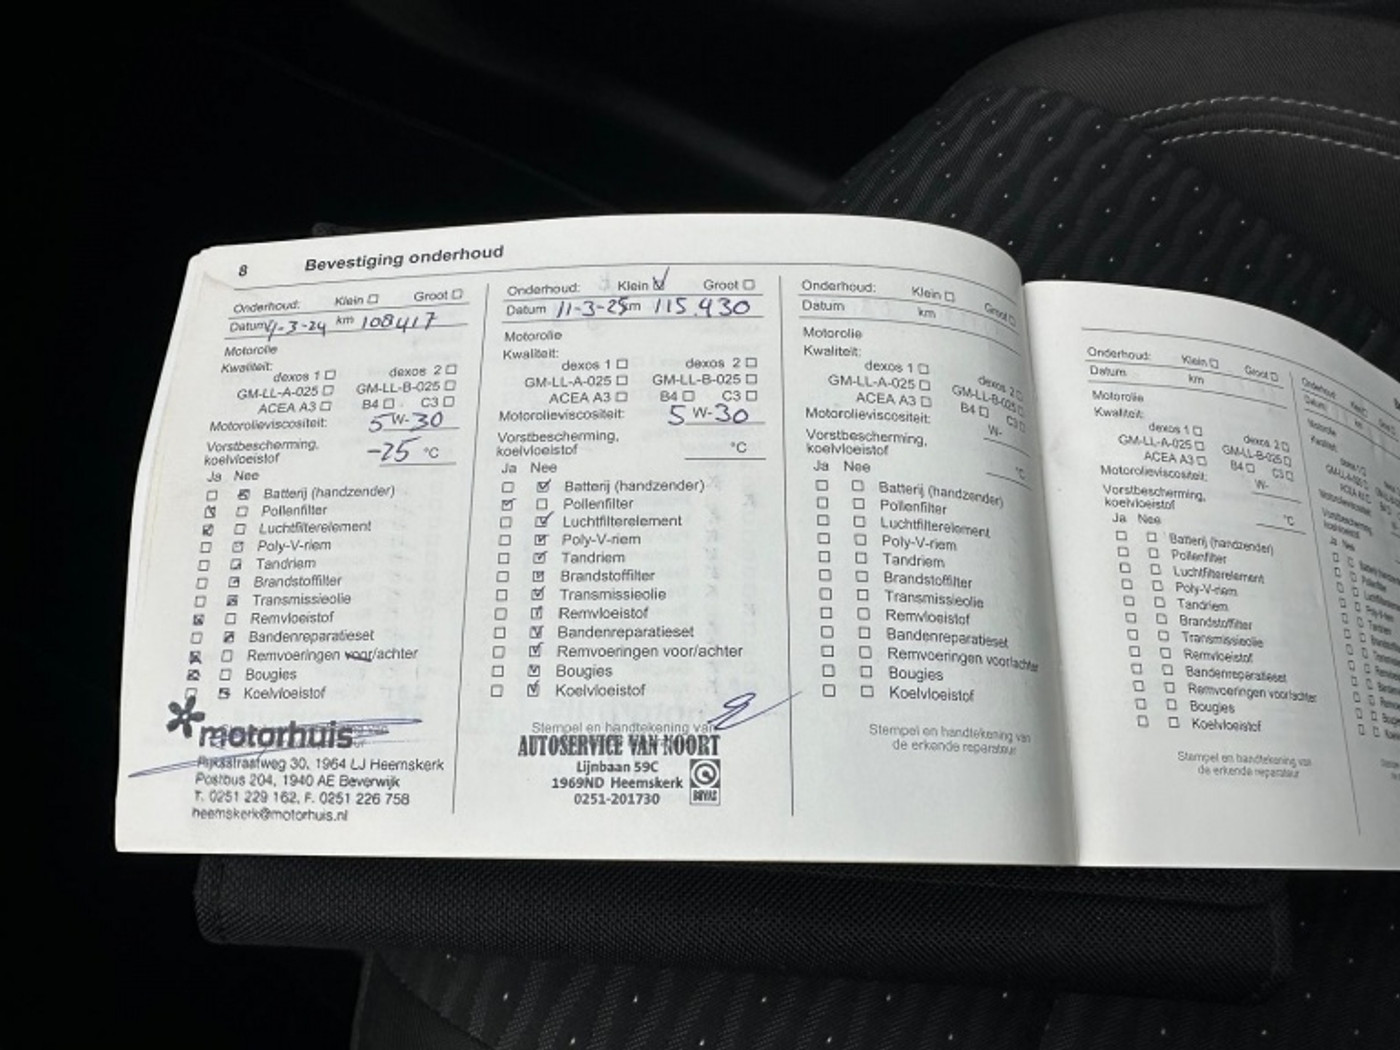 8 Bevestiging onderhoud
Onderhoud: Klein ☐ Groot ☐
Datum 4-3-24 km 108417
Motorolie
Kwaliteit:
dexos 1 ☐ dexos 2 ☐
GM-LL-A-025 ☐ GM-LL-B-025 ☐
ACEA A3 ☐ B4 ☐ C3 ☐
Motorolieviscositeit: 5 W-30
Vorstbescherming,
koelvloeistof -25 °C
Ja Nee
☐ ☒ Batterij (handzender)
☒ ☐ Pollenfilter
☒ ☐ Luchtfilterelement
☐ ☒ Poly-V-riem
☐ ☒ Tandriem
☐ ☒ Brandstoffilter
☐ ☒ Transmissieolie
☒ ☐ Remvloeistof
☐ ☒ Bandenreparatieset
☒ ☐ Remvoeringen voor/achter
☒ ☐ Bougies
☐ ☒ Koelvloeistof
motorhuis
Rijksstraatweg 30, 1964 LJ Heemskerk
Postbus 204, 1940 AE Beverwijk
T. 0251 229 162, F. 0251 226 758
heemskerk@motorhuis.nl
Onderhoud: Klein ☑ Groot ☐
Datum 11-3-25 km 115.430
Motorolie
Kwaliteit:
dexos 1 ☐ dexos 2 ☐
GM-LL-A-025 ☐ GM-LL-B-025 ☐
ACEA A3 ☐ B4 ☐ C3 ☐
Motorolieviscositeit: 5 W-30
Vorstbescherming,
koelvloeistof °C
Ja Nee
☐ ☑ Batterij (handzender)
☑ ☐ Pollenfilter
☐ ☑ Luchtfilterelement
☐ ☑ Poly-V-riem
☐ ☑ Tandriem
☐ ☑ Brandstoffilter
☐ ☑ Transmissieolie
☐ ☑ Remvloeistof
☐ ☑ Bandenreparatieset
☐ ☑ Remvoeringen voor/achter
☐ ☑ Bougies
☐ ☑ Koelvloeistof
Stempel en handtekening van
AUTOSERVICE VAN NOORT
Lijnbaan 59C
1969ND Heemskerk
0251-201730
BOVAG
Onderhoud: Klein ☐ Groot ☐
Datum km
Motorolie
Kwaliteit:
dexos 1 ☐ dexos 2 ☐
GM-LL-A-025 ☐ GM-LL-B-025 ☐
ACEA A3 ☐ B4 ☐ C3 ☐
Motorolieviscositeit: W-
Vorstbescherming,
koelvloeistof °C
Ja Nee
☐ ☐ Batterij (handzender)
☐ ☐ Pollenfilter
☐ ☐ Luchtfilterelement
☐ ☐ Poly-V-riem
☐ ☐ Tandriem
☐ ☐ Brandstoffilter
☐ ☐ Transmissieolie
☐ ☐ Remvloeistof
☐ ☐ Bandenreparatieset
☐ ☐ Remvoeringen voor/achter
☐ ☐ Bougies
☐ ☐ Koelvloeistof
Stempel en handtekening van
de erkende reparateur
Onderhoud: Klein ☐ Groot ☐
Datum km
Motorolie
Kwaliteit:
dexos 1 ☐ dexos 2 ☐
GM-LL-A-025 ☐ GM-LL-B-025 ☐
ACEA A3 ☐ B4 ☐ C3 ☐
Motorolieviscositeit: W-
Vorstbescherming,
koelvloeistof °C
Ja Nee
☐ ☐ Batterij (handzender)
☐ ☐ Pollenfilter
☐ ☐ Luchtfilterelement
☐ ☐ Poly-V-riem
☐ ☐ Tandriem
☐ ☐ Brandstoffilter
☐ ☐ Transmissieolie
☐ ☐ Remvloeistof
☐ ☐ Bandenreparatieset
☐ ☐ Remvoeringen voor/achter
☐ ☐ Bougies
☐ ☐ Koelvloeistof
Stempel en handtekening van
de erkende reparateur